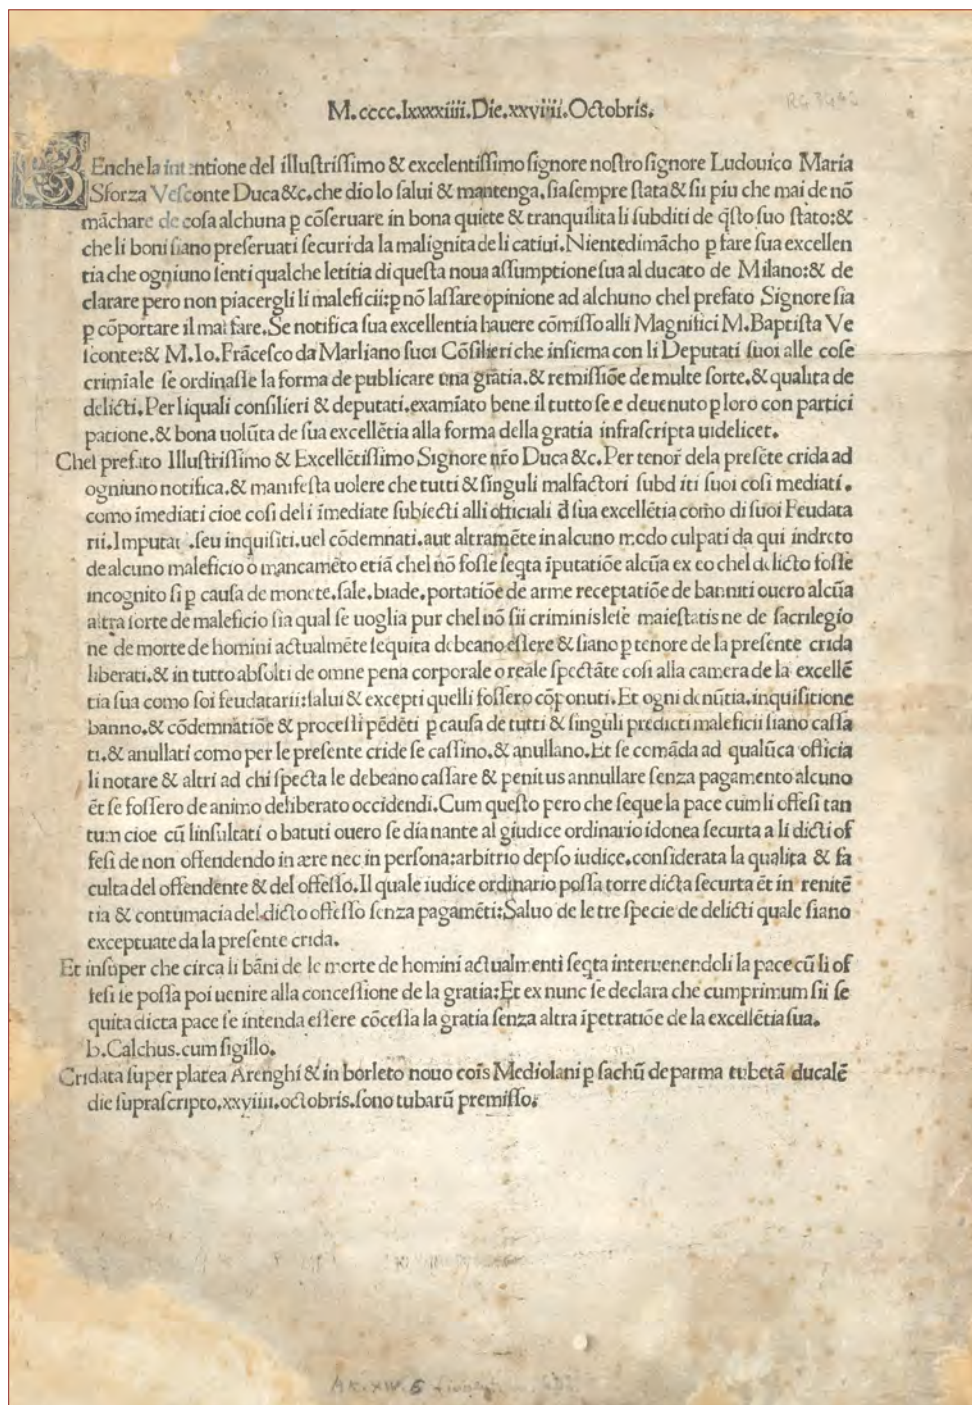 M.cccc.lxxxxiiii.Die.xxviiii.Octobris.
BEnche la intentione del illuſtriſſimo & excelentiſſimo ſignore noſtro ſignore Ludouico Maria
Sforza Veſconte Duca&c.che dio lo ſalui & mantenga,ſia ſempre ſtata & ſii piu che mai de nō
māchare de coſa alchuna ꝑ cōſeruare in bona quiete & tranquilita li ſubditi de q̄ſto ſuo ſtato:&
che li boni ſiano preſeruati ſecuri da la malignita de li catiui.Nientedimācho ꝑ fare ſua excellen
tia che ogniuno ſenti qualche letitia di queſta noua aſſumptione ſua al ducato de Milano:& de
clarare pero non piacergli li maleficii:ꝑ nō laſſare opinione ad alchuno chel prefato Signore ſia
ꝑ cōportare il mal fare.Se notifica ſua excellentia hauere cōmiſſo alli Magnifici M.Baptiſta Ve
ſconte:& M.Io.Frāceſco da Marliano ſuoi Cōſilieri che inſiema con li Deputati ſuoi alle coſe
crimīale ſe ordinaſſe la forma de publicare una gratia.& remiſſiōe de multe ſorte.& qualita de
delicti.Per liquali conſilieri & deputati.examīato bene il tutto ſe e deuenuto ꝑ loro con partici
patione.& bona uolūta de ſua excellētia alla forma della gratia infraſcripta uidelicet.
Chel prefato Illuſtriſſimo & Excellētiſſimo Signore nr̄o Duca &c.Per tenor̄ dela preſēte crida ad
ogniuno notifica.& manifeſta uolere che tutti & ſinguli malfactori ſubd iti ſuoi coſi mediati.
como īmediati cioe coſi deli īmediate ſubiecti alli officiali đ ſua excellētia como di ſuoi Feudata
rii.Imputat .ſeu inquiſiti.uel cōdemnati.aut altramēte in alcuno modo culpati da qui indreto
de alcuno maleficio o mancamēto etiā chel nō foſſe ſeq̄ta īputatiōe alcūa ex eo chel delicto foſſe
incognito ſi ꝑ cauſa de monete.ſale.biade.portatiōe de arme receptatiōe de banniti ouero alcūa
altra ſorte de maleficio ſia qual ſe uoglia pur chel nō ſii criminis leſe maieſtatis ne de ſacrilegio
ne de morte de homini actualmēte ſequita debeano eſſere & ſiano ꝑ tenore de la preſente crida
liberati.& in tutto abſolti de omne pena corporale o reale ſpectāte coſi alla camera de la excellē
tia ſua como ſoi feudatarii:ſalui & excepti quelli foſſero cōponuti. Et ogni denūtia.inquiſitione
banno.& cōdemnātiōe & proceſſi pēdēti ꝑ cauſa de tutti & ſinguli predicti maleficii ſiano caſſa
ti.& anullati como per le preſente cride ſe caſſino.& anullano.Et ſe comāda ad qualūca officia
li notare & altri ad chi ſpecta le debeano caſſare & penitus annullare ſenza pagamento alcuno
ēt ſe foſſero de animo deliberato occidendi.Cum queſto pero che ſeque la pace cum li offeſi tan
tum cioe cū linſultati o batuti ouero ſe dia nante al giudice ordinario idonea ſecurta a li dicti of
feſi de non offendendo in ære nec in perſona:arbitrio depſo iudice.conſiderata la qualita & fa
culta del offendente & del offeſſo.Il quale iudice ordinario poſſa torre dicta ſecurta ēt in renitē
tia & contumacia del dicto offeſſo ſenza pagamēti:Saluo de le tre ſpecie de delicti quale ſiano
exceptuate da la preſente crida.
Et inſuper che circa li bāni de le morte de homini actualmenti ſeq̄ta interuenendoli la pace cū li of
feſi ſe poſſa poi uenire alla conceſſione de la gratia:Et ex nunc ſe declara che cumprimum ſii ſe
quita dicta pace ſe intenda eſſere cōceſſa la gratia ſenza altra īpetratiōe de la excellētia ſua.
b.Calchus.cum ſigillo.
Cridata ſuper platea Arenghi & in borleto nouo cōis Mediolani ꝑ ſachū de parma tubetā ducalē
die ſupraſcripto.xxviiii.octobris.ſono tubarū premiſſo.